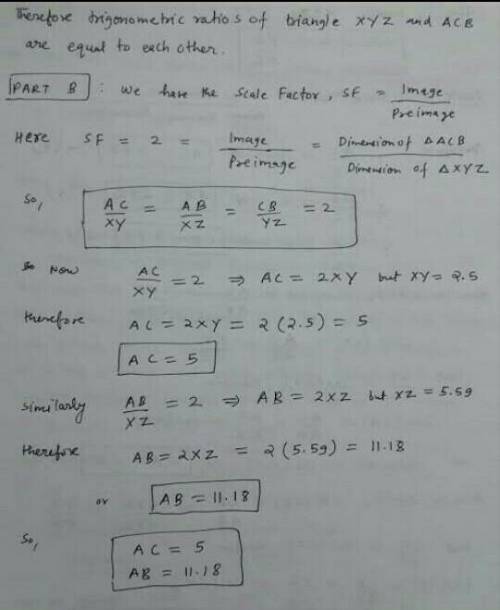 Therefore trigonometric ratios of triangle XYZ and ACB
are equal to each other.
PART B : We have the Scale Factor, SF = Image / Preimage
Here SF = 2 = Image / Preimage = Dimension of △ACB / Dimension of △XYZ
So, AC/XY = AB/XZ = CB/YZ = 2
So Now AC/XY = 2 ⇒ AC = 2XY but XY = 2.5
therefore AC = 2XY = 2(2.5) = 5
AC = 5
similarly AB/XZ = 2 ⇒ AB = 2XZ but XZ = 5.59
therefore AB = 2XZ = 2(5.59) = 11.18
or AB = 11.18
So, AC = 5
AB = 11.18